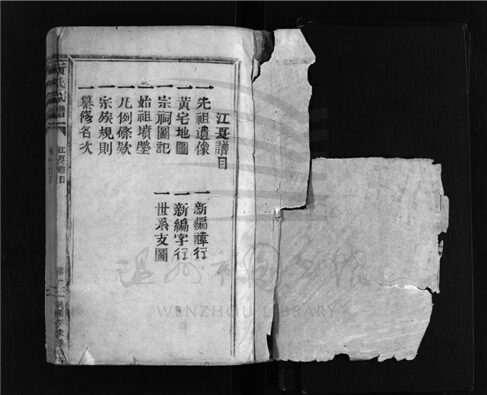 江夏譜目
一先祖遺像
一黃宅地圖
一宗祠圖記
一始祖墳塋
一凡例條欵
一宗族規則
一纂修名次
一新編諱行
一新編字行
一世系支圖
江夏譜目
WENZHOU LIBRARY